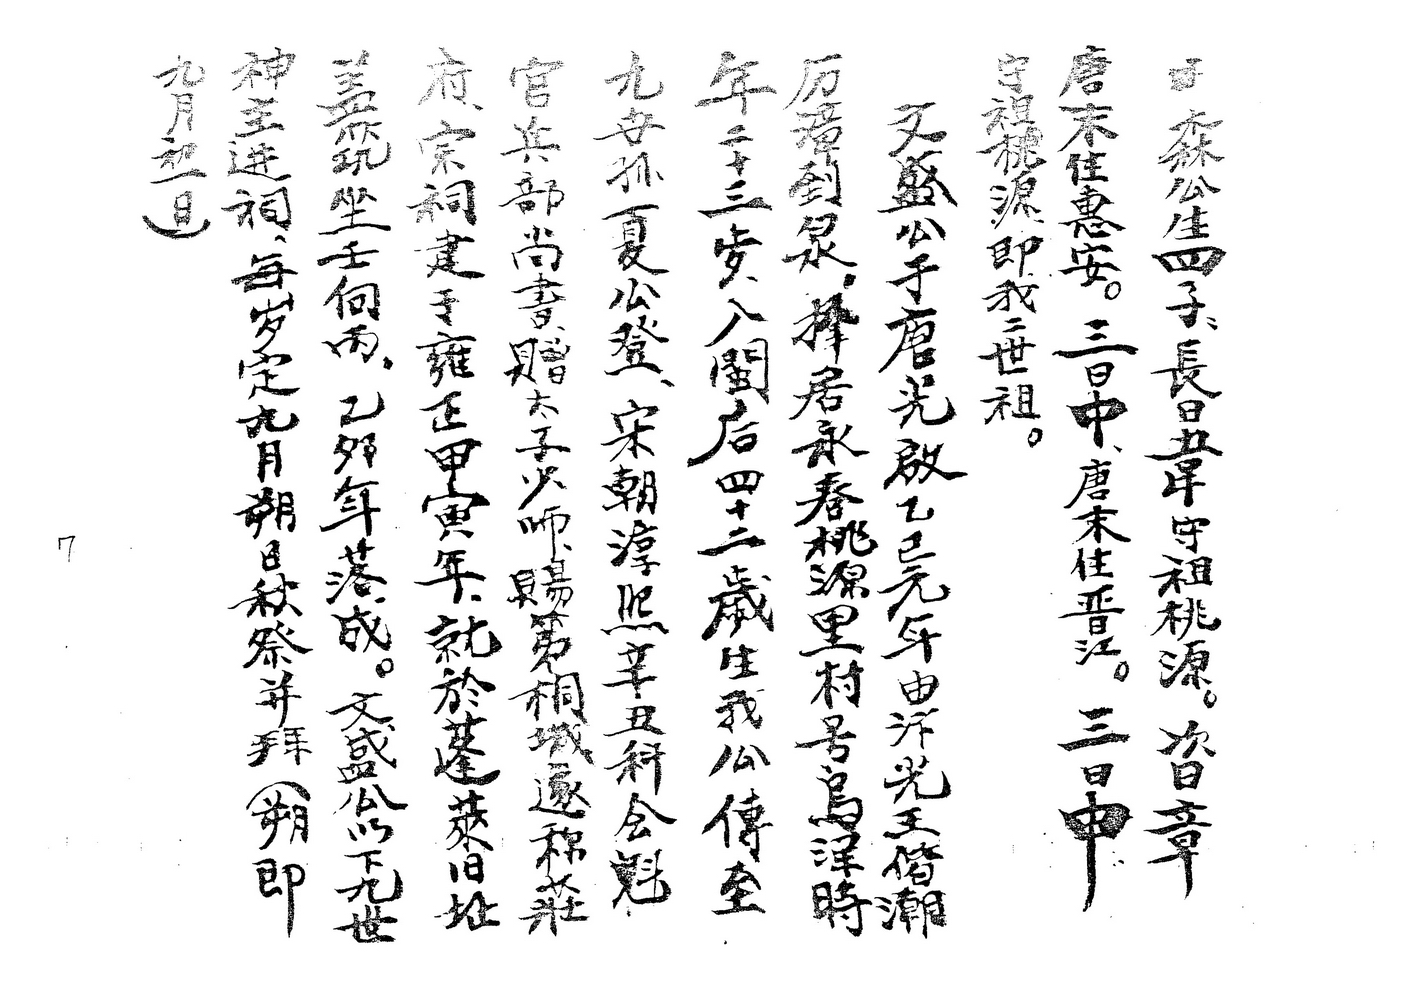 曰森公生四子、長曰韋守祖桃源。次曰章
唐末住惠安。三曰中、唐末住晋江。三曰申
守祖桃源即我二世祖。
文盛公于唐光啟乙巳元年由汴光王偕潮
历漳到泉，擇居永春桃源里村号烏洋時
年二十三歩、入閩后四十二歲生我公傳至
九世孫夏公登、宋朝淳熙辛丑科会魁
官兵部尚書、贈太子少師、賜第桐城遂称莊
府、宗祠建于雍正甲寅年、就於蓬萊旧址
蓋筑坐壬何丙，乙卯年落成。文盛公以下九世
神主进祠、每岁定九月朔日秋祭并拜（朔即
九月初一日）
7